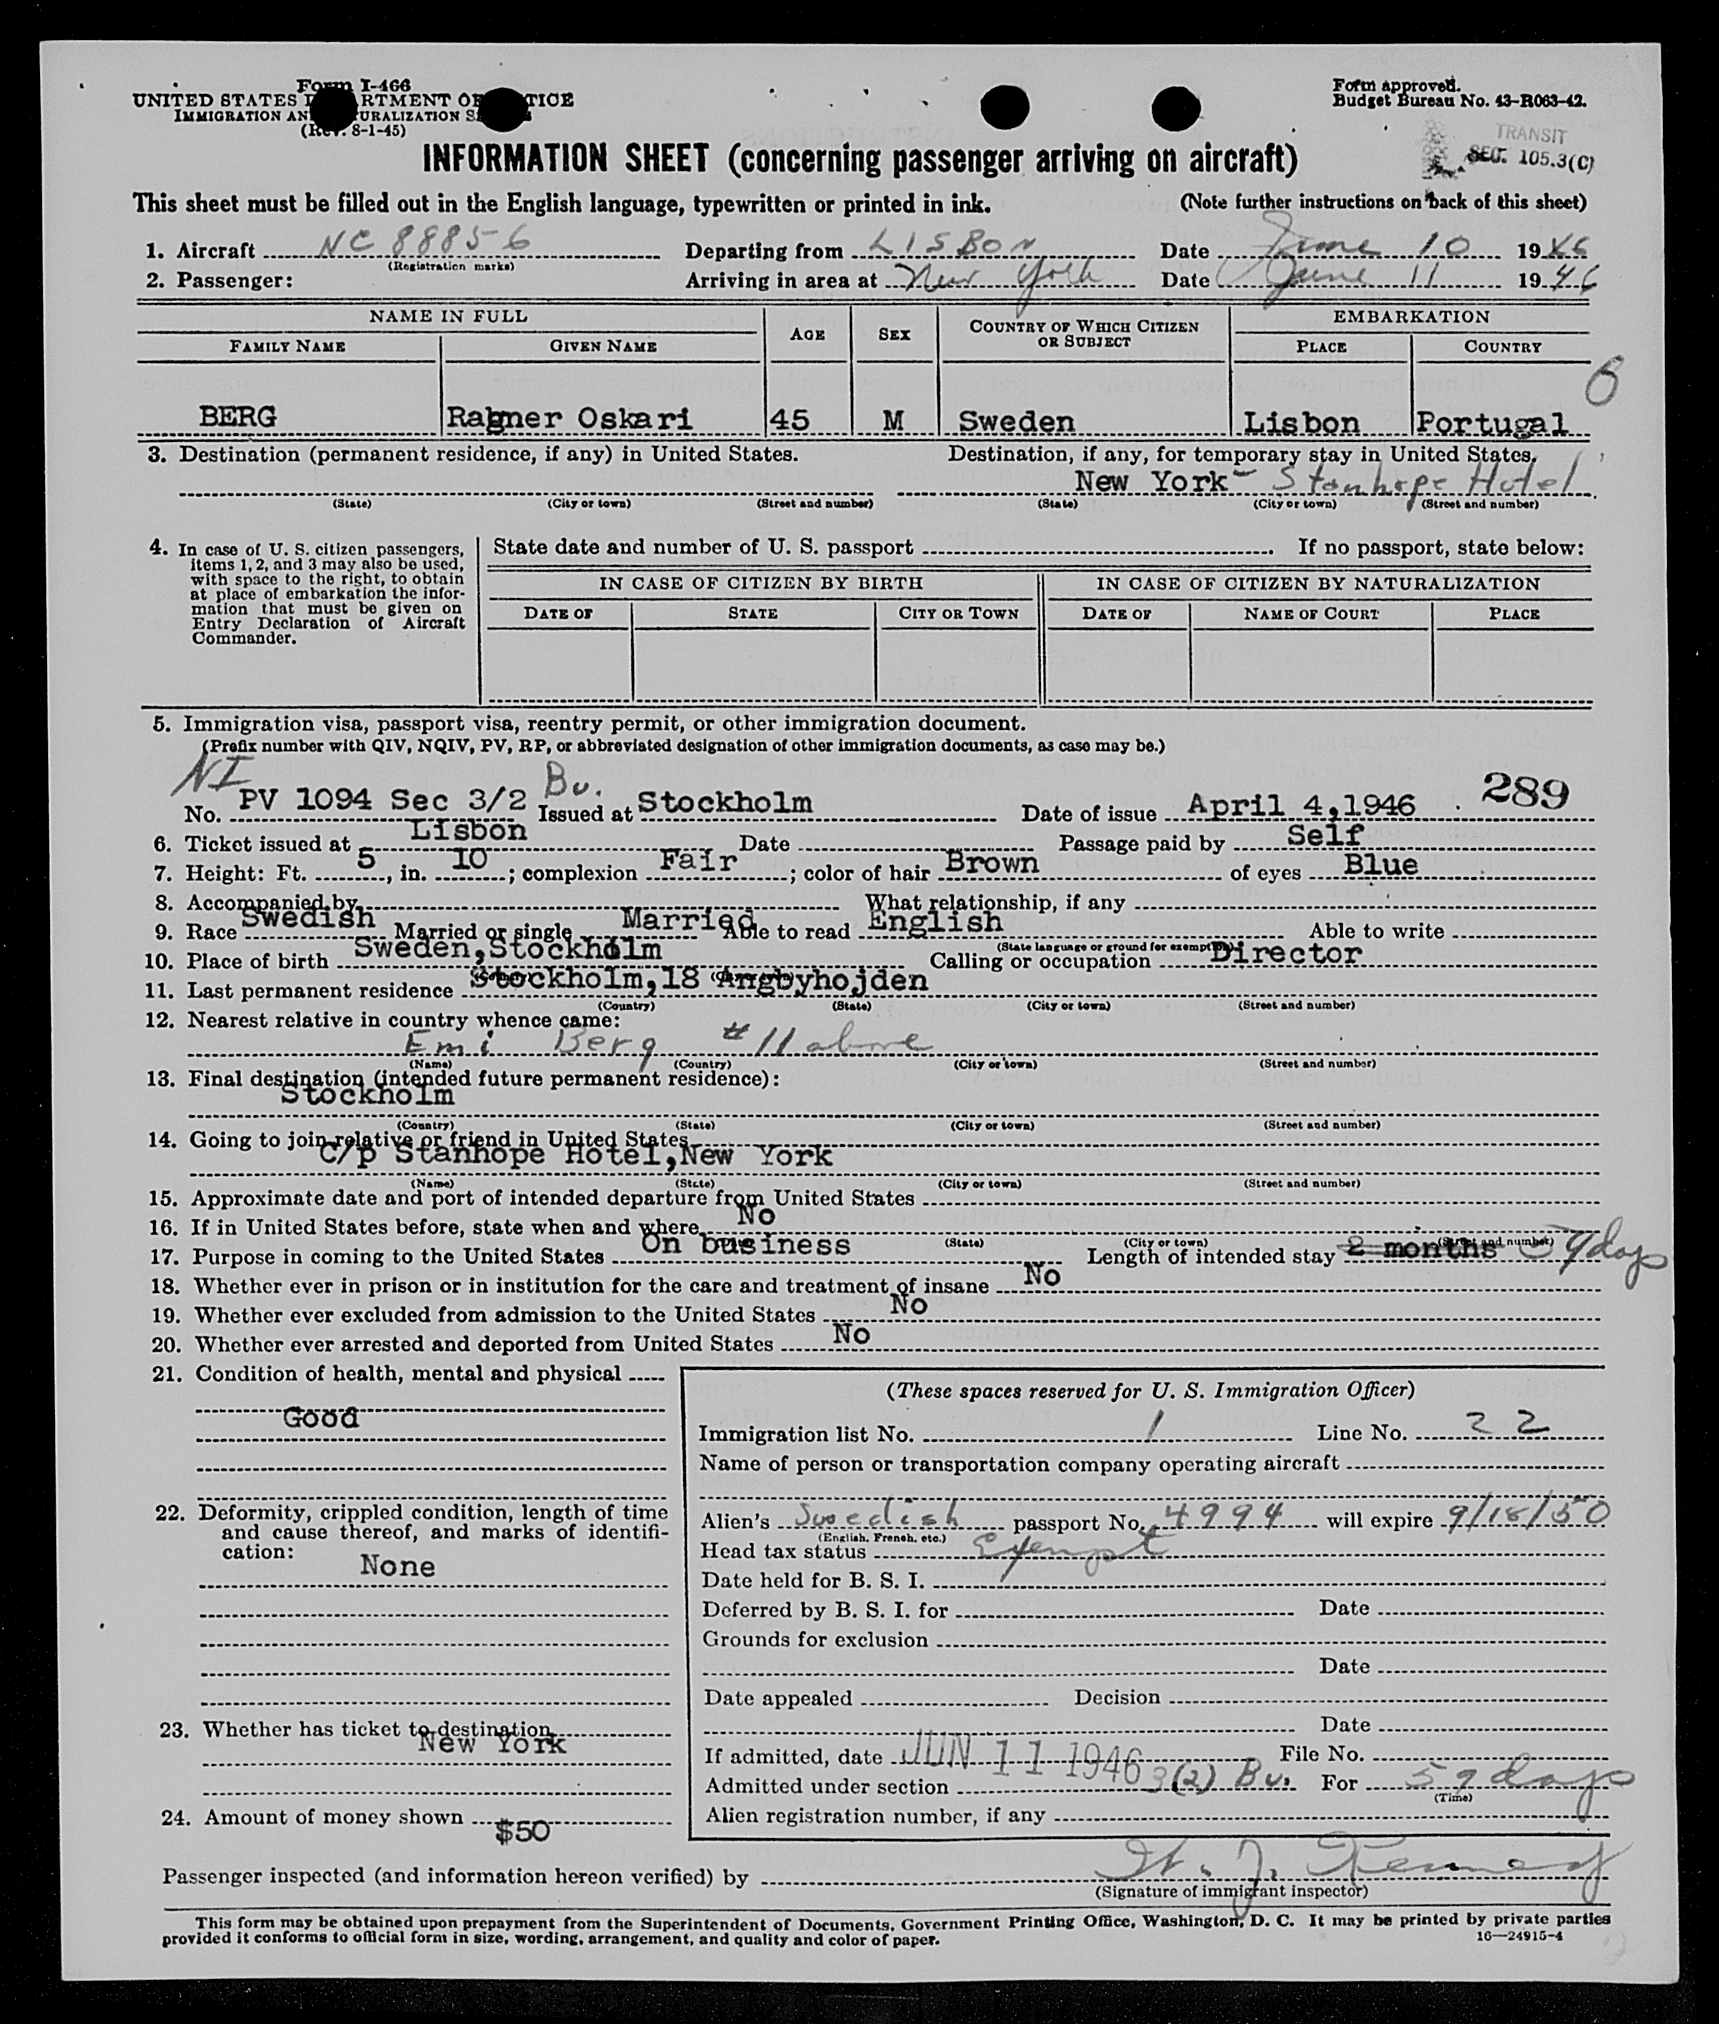 Form I-466
UNITED STATES D RTMENT OF TICE
IMMIGRATION AN URALIZATION S
(Rev. 8-1-45)
Form approved.
Budget Bureau No. 43-R063-42.
TRANSIT
SEC. 105.3(C)
INFORMATION SHEET (concerning passenger arriving on aircraft)
This sheet must be filled out in the English language, typewritten or printed in ink. (Note further instructions on back of this sheet)
1. Aircraft NC 88856 Departing from LISBON Date June 10 1946
(Registration marks)
2. Passenger: Arriving in area at New York Date June 11 1946
NAME IN FULL AGE SEX COUNTRY OF WHICH CITIZEN OR SUBJECT EMBARKATION
FAMILY NAME GIVEN NAME PLACE COUNTRY
BERG Ragner Oskari 45 M Sweden Lisbon Portugal
3. Destination (permanent residence, if any) in United States. Destination, if any, for temporary stay in United States.
New York - Stanhope Hotel
(State) (City or town) (Street and number) (State) (City or town) (Street and number)
4. In case of U. S. citizen passengers, items 1, 2, and 3 may also be used, with space to the right, to obtain at place of embarkation the information that must be given on Entry Declaration of Aircraft Commander.
State date and number of U. S. passport . If no passport, state below:
IN CASE OF CITIZEN BY BIRTH IN CASE OF CITIZEN BY NATURALIZATION
DATE OF STATE CITY OR TOWN DATE OF NAME OF COURT PLACE
5. Immigration visa, passport visa, reentry permit, or other immigration document.
(Prefix number with QIV, NQIV, PV, RP, or abbreviated designation of other immigration documents, as case may be.)
NI Bu. 289
No. PV 1094 Sec 3/2 Issued at Stockholm Date of issue April 4,1946
6. Ticket issued at Lisbon Date Passage paid by Self
7. Height: Ft. 5, in. 10; complexion Fair; color of hair Brown of eyes Blue
8. Accompanied by What relationship, if any
9. Race Swedish Married or single Married Able to read English Able to write
(State language or ground for exemption)
10. Place of birth Sweden,Stockholm Calling or occupation Director
11. Last permanent residence Stockholm,18 Angbyhojden
(Country) (State) (City or town) (Street and number)
12. Nearest relative in country whence came:
Emi Berg #11 above
(Name) (Country) (City or town) (Street and number)
13. Final destination (intended future permanent residence):
Stockholm
(Country) (State) (City or town) (Street and number)
14. Going to join relative or friend in United States
C/p Stanhope Hotel,New York
(Name) (State) (City or town) (Street and number)
15. Approximate date and port of intended departure from United States
16. If in United States before, state when and where No
(State) (City or town) (Street and number)
17. Purpose in coming to the United States On business Length of intended stay 2 months 59 days
18. Whether ever in prison or in institution for the care and treatment of insane No
19. Whether ever excluded from admission to the United States No
20. Whether ever arrested and deported from United States No
21. Condition of health, mental and physical
Good
22. Deformity, crippled condition, length of time and cause thereof, and marks of identification:
None
23. Whether has ticket to destination
New York
24. Amount of money shown $50
(These spaces reserved for U. S. Immigration Officer)
Immigration list No. 1 Line No. 22
Name of person or transportation company operating aircraft
Alien's Swedish passport No. 4994 will expire 9/18/50
(English, French, etc.)
Head tax status Exempt
Date held for B. S. I.
Deferred by B. S. I. for Date
Grounds for exclusion
Date
Date appealed Decision
Date
If admitted, date JUN 11 1946 File No.
Admitted under section 3(2) Bu. For 59 days
(Time)
Alien registration number, if any
Passenger inspected (and information hereon verified) by
(Signature of immigrant inspector)
This form may be obtained upon prepayment from the Superintendent of Documents, Government Printing Office, Washington, D. C. It may be printed by private parties
provided it conforms to official form in size, wording, arrangement, and quality and color of paper. 16—24915-4